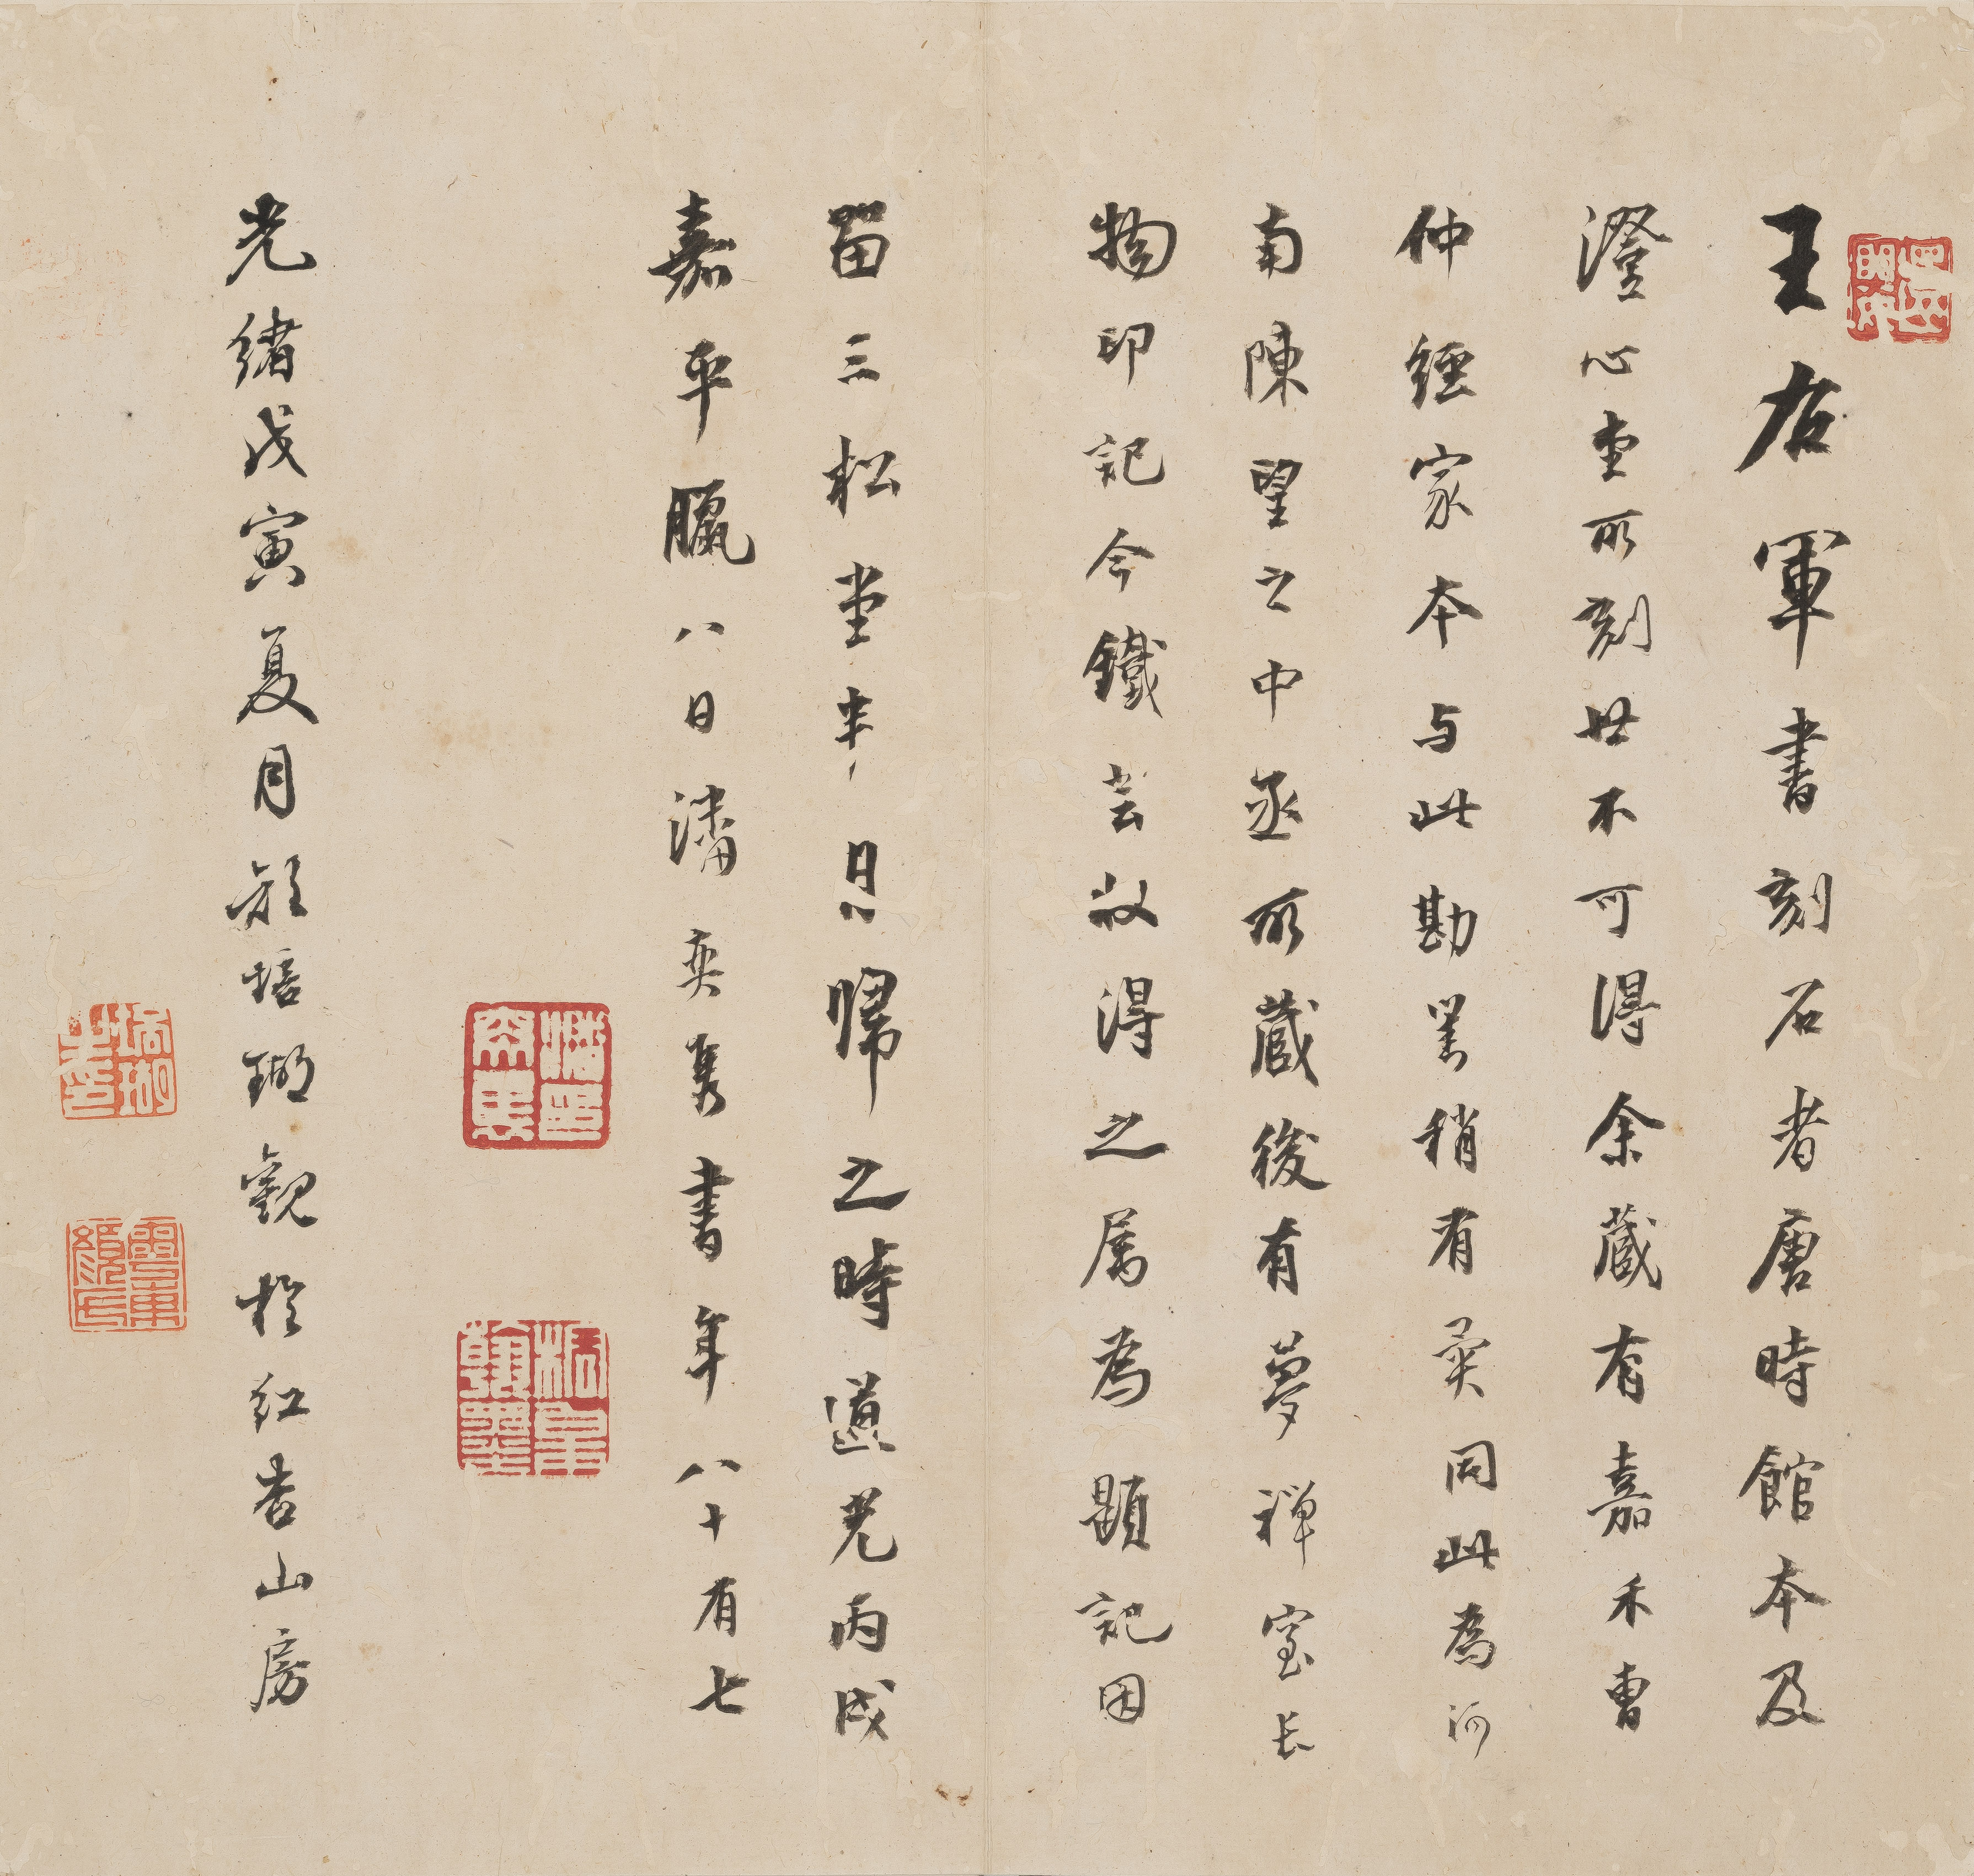 王右軍書刻石者唐時館本及
澄心堂所刻世不可得余藏有嘉禾曹
仲經家本与此勘異稍有奕同此為河
南陳望之中丞所藏後有夢禪室長
物印記今鐵芸敀得之属為題記因
留三松堂半月歸之時道光丙戌
嘉平臘八日潘奕雋書年八十有七
光緒戊寅夏月 培瑚觀於紅杏山房